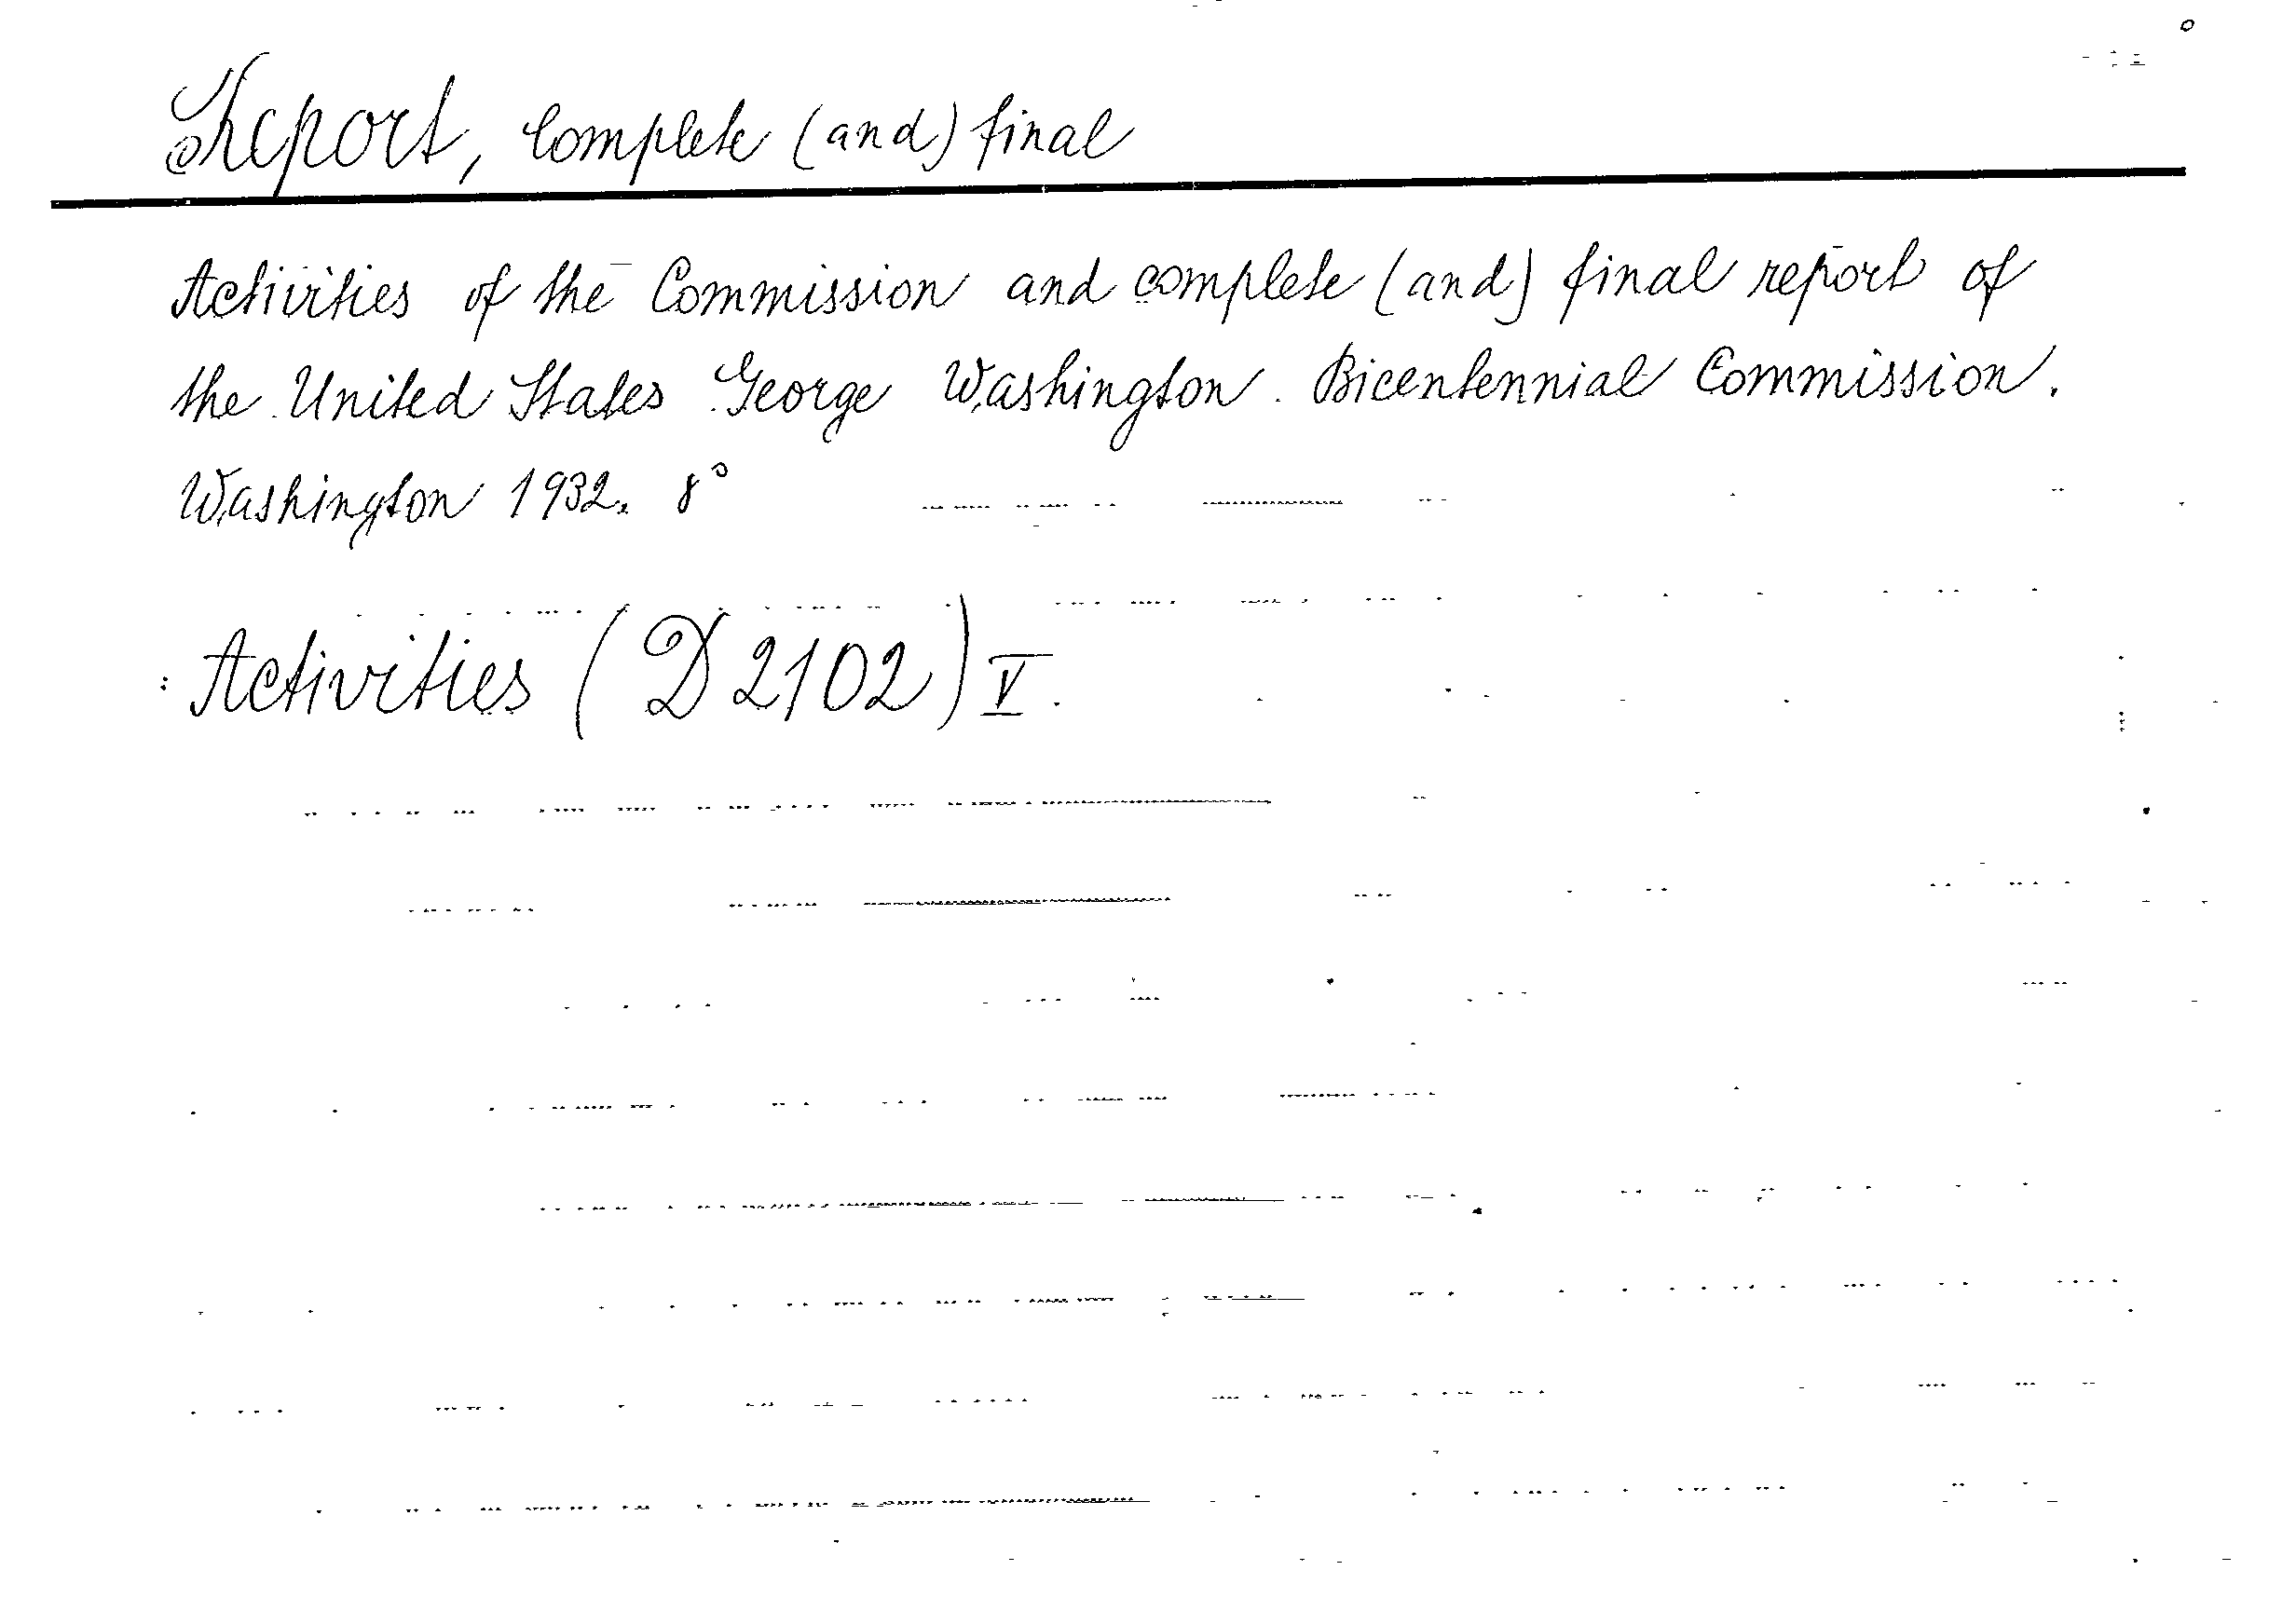 Report, complete (and) final
Activities of the Commission and complete (and) final report of
the United States George Washington Bicentennial Commission.
Washington 1932. 8°
: Activities (D 2102) V.